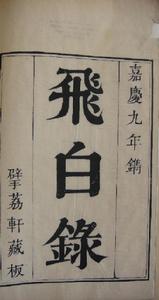 嘉慶九年鐫
飛白錄
擘荔軒藏板